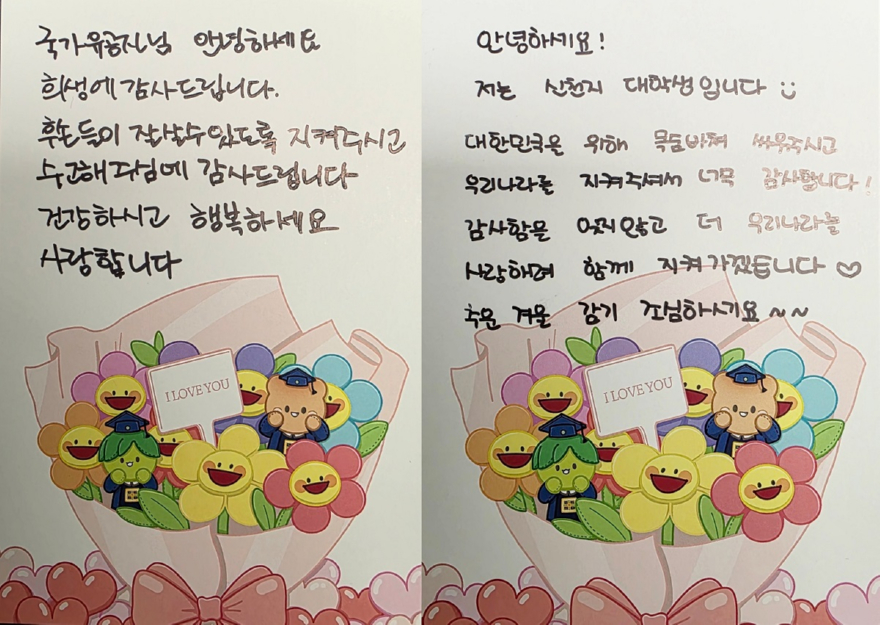 국가유공자님 안녕하세요
희생에 감사드립니다.
후손들이 잘 살 수 있도록 지켜주시고
수고해 주심에 감사드립니다
건강하시고 행복하세요
사랑합니다
I LOVE YOU
안녕하세요!
저는 신천지 대학생입니다
대한민국을 위해 목숨바쳐 싸워주시고
우리나라를 지켜주셔서 너무 감사합니다!
감사함을 잊지않고 더 우리나라를
사랑하며 함께 지켜가겠습니다 ♡
추운 겨울 감기 조심하시기요 ~ ~
I LOVE YOU